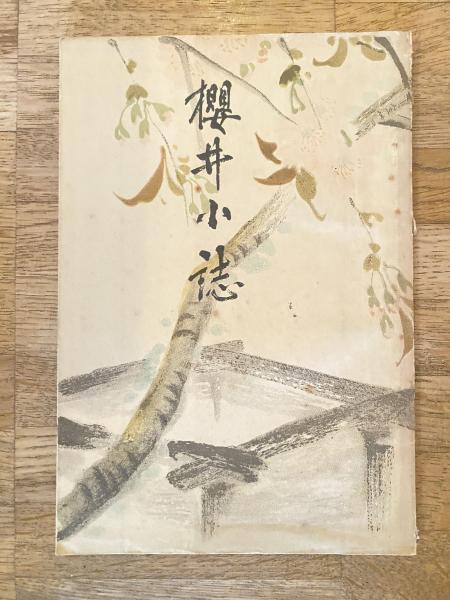 櫻井小誌